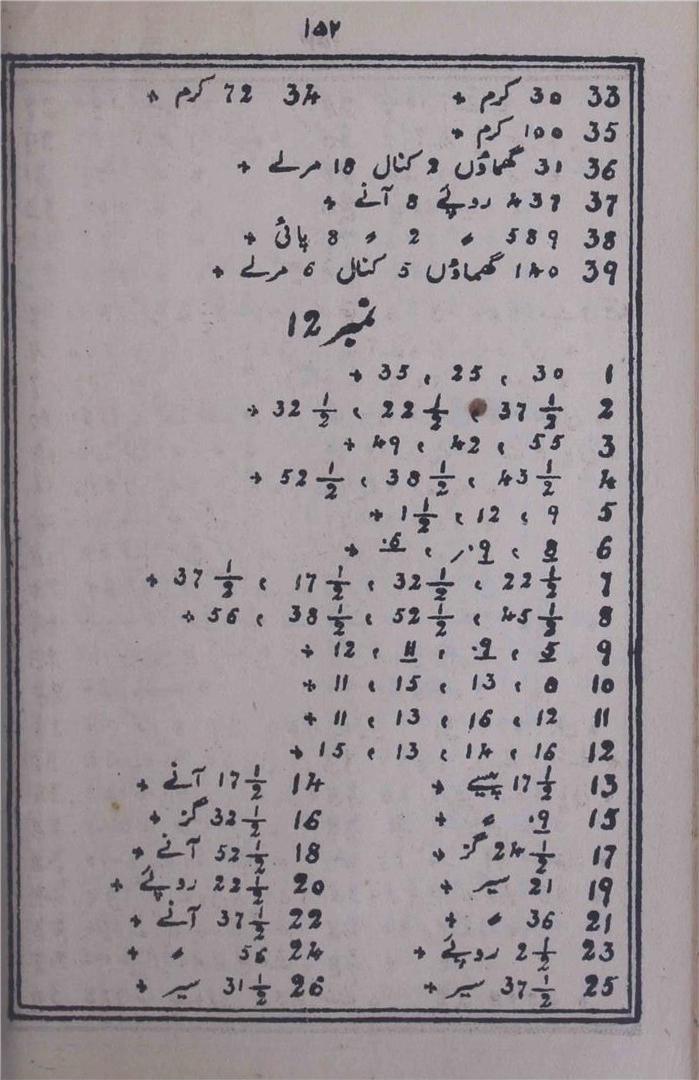 ۱۵۲
33 30 کرم + 34 72 کرم +
35 100 کرم +
36 31 گھماؤں 2 کنال 18 مرلے +
37 437 روپئے 8 آنے +
38 589 〃 2 〃 8 پائی +
39 140 گھماؤں 5 کنال 6 مرلے +
نمبر 12
1 30 ، 25 ، 35 +
2 37 1/2 ، 22 1/2 ، 32 1/2 +
3 55 ، 42 ، 49 +
4 43 1/2 ، 38 1/2 ، 52 1/2 +
5 9 ، 12 ، 1 1/2 +
6 8 ، 9 ، 6 +
7 22 1/2 ، 32 1/2 ، 17 1/2 ، 37 1/2 +
8 45 1/2 ، 52 1/2 ، 38 1/2 ، 56 +
9 5 ، 9 ، 11 ، 12 +
10 8 ، 13 ، 15 ، 11 +
11 12 ، 16 ، 13 ، 11 +
12 16 ، 14 ، 13 ، 15 +
13 17 1/2 پیسے + 14 17 1/2 آنے +
15 9 〃 + 16 32 1/2 گز +
17 24 1/2 گز + 18 52 1/2 آنے +
19 21 سیر + 20 22 1/2 روپئے +
21 36 〃 + 22 37 1/2 آنے +
23 2 1/2 روپئے + 24 56 〃 +
25 37 1/2 سیر + 26 31 1/2 سیر +